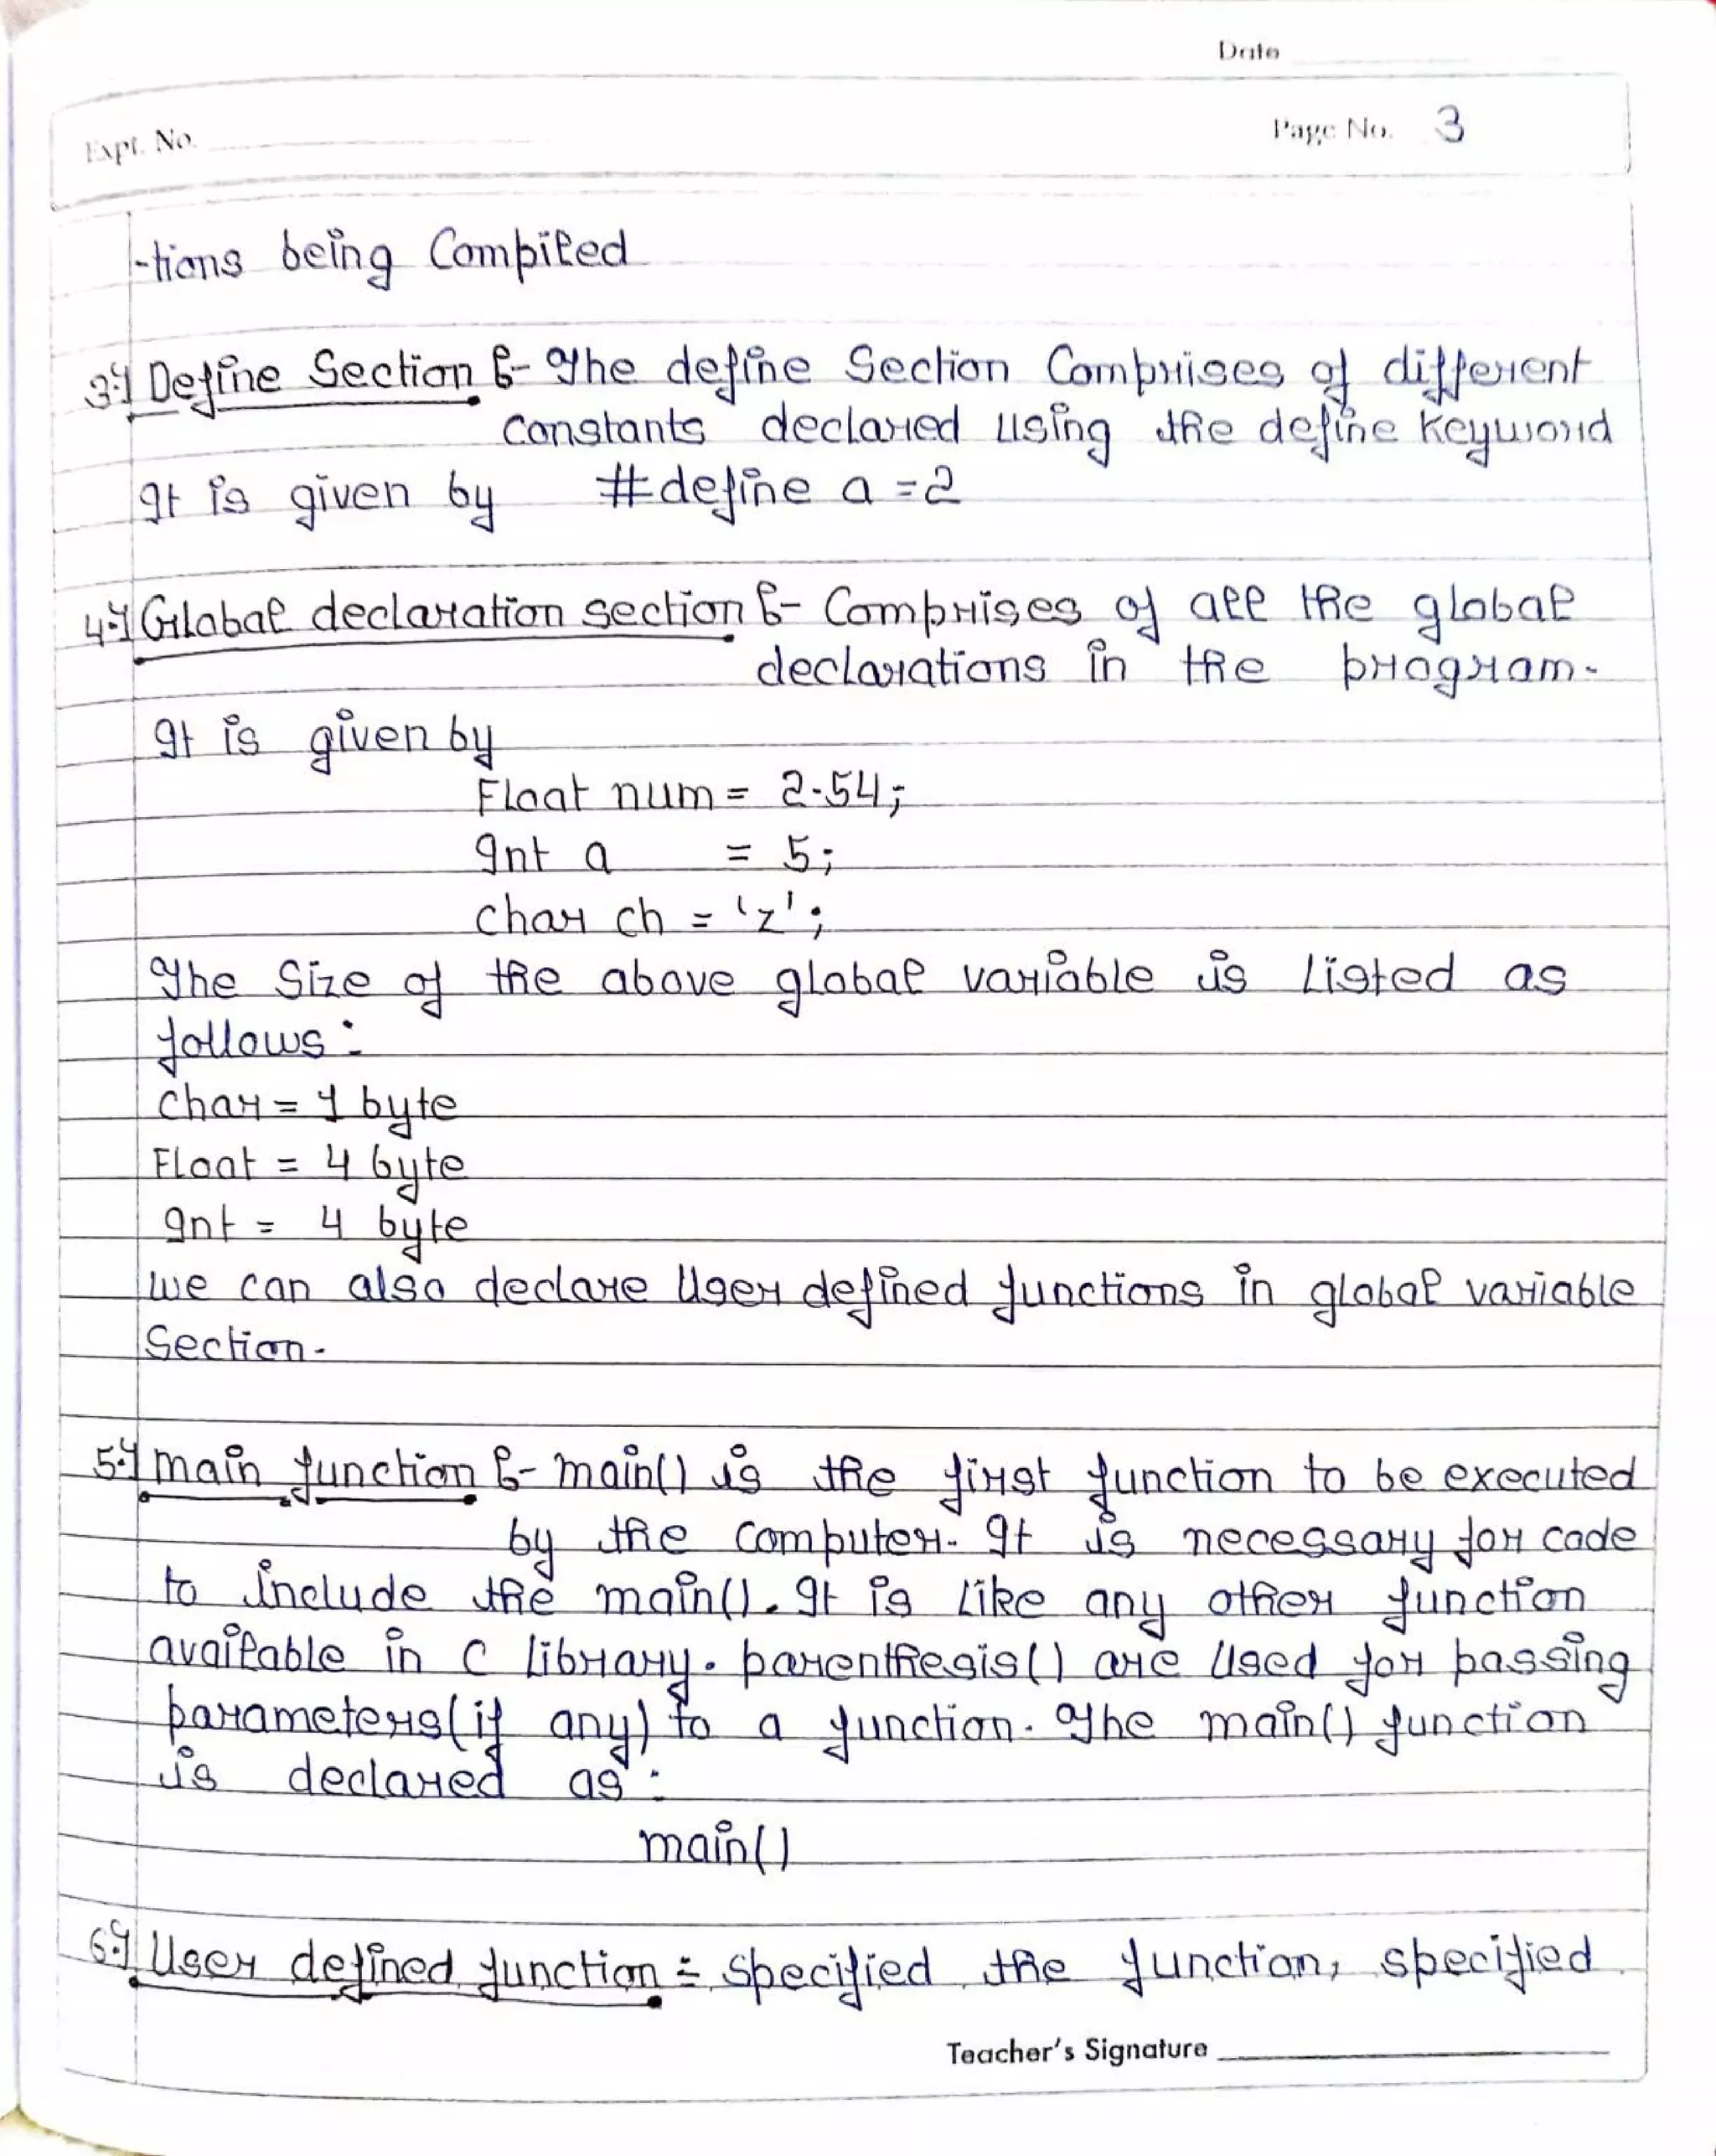 Date
Expt. No.
Page No. 3
-tions being Compiled
3.} Define Section :- The define Section Comprises of different
constants declared using the define keyword
It is given by #define a =2
4.} Global declaration section :- Comprises of all the global
declarations in the program.
It is given by
Float num = 2.54;
Int a = 5;
char ch = 'z';
The Size of the above global variable is Listed as
follows :
char = 1 byte
Float = 4 byte
Int = 4 byte
we can also declare User defined functions in global variable
Section.
5.} main function :- main() is the first function to be executed
by the computer. It is necessary for code
to include the main(). It is Like any other function
available in C library. parenthesis() are Used for passing
parameters(if any) to a function. The main() function
is declared as :
main()
6.} User defined function = specified the function, specified
Teacher's Signature